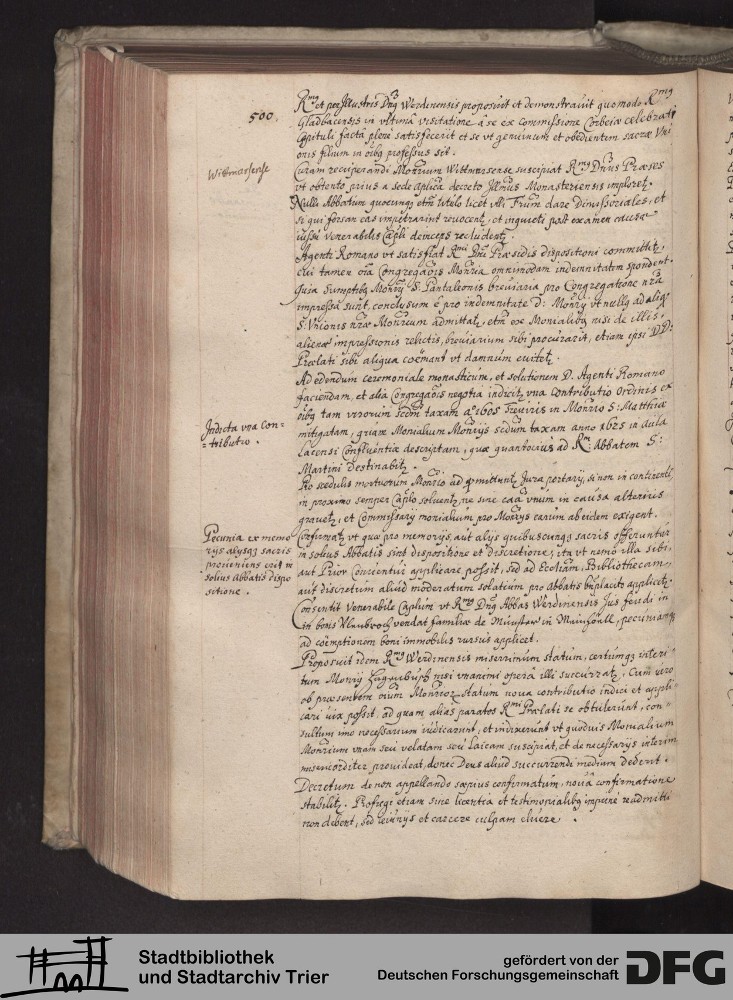 500.
R.mg et perillustris Dng Werdinensis proposuit et demonstravit quomodo R.mg
Gladbacensis in ultimâ visitatione â se ex commissione Corbeiae celebrati
Capituli factâ plenè satisfecerit et se ut genuinum et obedientem sacrae Uni
onis filium in oibg professus sit.
Wittmarsense
Curam recuperandi Monrium Wittmarsense suscipiat R.mg Dnus Praeses
ut obtento prius a sede aplica decreto Illmus Monasteriensis imploret.
Nulli Abbatum quocunq etm titulo licet illi Frum dare dimissoriales, et
si qui forsan eas impetrarint revocent, et inquieti post examen causae
iussu venerabilis Capli deinceps recludent.
Agenti Romano ut satisfiat R.mi Dni Praesidis dispositioni committit,
cui tamen oia Congregaois Monria omnimodam indemnitatem spondent.
Quia sumptibg Monry S. Pantaleonis breviaria pro Congregatione nra
impressa sunt, conclusum e pro indemnitate d: Monry ut nullg ad aliq
S. Unionis nrae Monrium admittat, etm ex Monialibg nisi de illis,
alienae impressionis relictis, breviarium sibi procurarit, etiam ipsi DD:
Praelati sibi aliqua coëmant ut damnum evitet.
Indicta una Con-
-tributio.
Ad edendum ceremoniale monasticum, et solutionem D. Agenti Romano
faciendam, et alia Congregaois negotia indicit una contributio ordinis ex
oibg tam virorum secdm taxam aº 1605 Treviris in Monrio S: Matthiae
mitigatam, quàm Monialium Monrys secdum taxam anno 1625 in aula
Lacensi Confluentiae descriptam, quae quantocius ad R.m Abbatem S:
Martini destinabit.
Pro scedulis mortuorum Monrio ad qd mittunt Jura portary, si non in continenti
in proximo semper Caplo solvent, ne sine caa unum in causa alterius
gravet, et Commissary monialium pro Monrys earum ab eidem exigent.
Pecunia ex memo
rys alysq sacris
proveniens erit in
solius Abbatis dispo
sitione.
Confirmat ut quae pro memorys, aut alys quibuscunq sacris offeruntur
in solius Abbatis sint dispositione et discretione, ita ut nemo illa sibi,
aut Prior Conventui applicare possit, sed ad Eccliam, Bibliothecam,
aut discretum aliud moderatum solatium pro Abbatis bnplacito applicit.
Consentit Venerabile Caplum ut R.mg Dng Abbas Werdinensis Jus feudi in
in bonis vendat familiae de Münster in pecuniamq
ad coëmptionem boni immobilis rursus applicet.
Proposuit idem R.mg Werdinensis miserrimum statum, certumq interi-
tum Monry nisi unanimi operâ illi succurrat, Cum vero
ob praesentem oium Monriorum statum nova contributio indici et appli-
cari vix possit, ad quam alias paratos R.mi Praelati se obtulerint, con-
sultum imo necessarium iudicarunt, et indixerunt ut quodvis Monialium
Monrium unam seu velatam seu laicam suscipiat, et de necessarys interim
misericorditer provideat, donec Deus aliud succurrendi medium dederit.
Decretum de non appellando saepius confirmatum, novâ confirmatione
stabilit. Profugi etiam sine licentia et testimonialibg impunè readmitti
non debent, sed ieiunys et carcere culpam eluere.
Stadtbibliothek
und Stadtarchiv Trier
gefördert von der
Deutschen Forschungsgemeinschaft
DFG